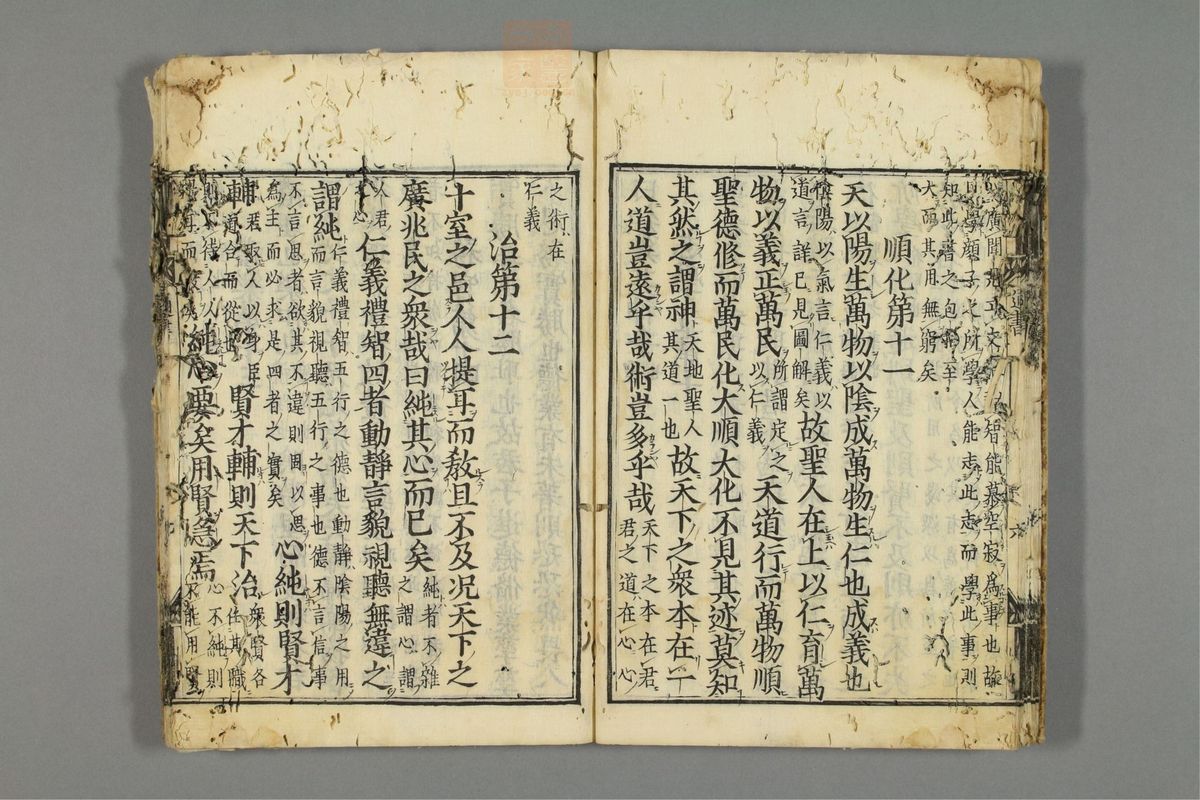 廣聞見工文 智能慕空寂爲事也故
曰學顏子之所學人能志此志而學此事則
知此書之包括至
大而其用無窮矣
順化第十一
天以陽生萬物以陰成萬物生仁也成義也
陰陽以氣言仁義以
道言詳已見圖解矣
故聖人在上以仁育萬
物以義正萬民
所謂定之
以仁義
天道行而萬物順
聖德修而萬民化大順大化不見其迹莫知
其然之謂神
天地聖人
其道一也
故天下之衆本在一
人道豈遠乎哉術豈多乎哉
天下之本在君
君之道在心心
之術在
仁義
治第十二
十室之邑人人提耳而敎且不及况天下之
廣兆民之衆哉曰純其心而已矣
純者不雜
之謂心謂
人君
之心
仁義禮智四者動靜言貌視聽無違之
謂純
仁義禮智五行之德也動靜陰陽之用
而言貌視聽五行之事也德不言信事
不言思者欲其不違則固以思
爲主而必求是四者之實矣
心純則賢才
輔
君取人以身臣
道合而從也
賢才輔則天下治
衆賢各
任其職
則不待人人
耳而
純心要矣用賢急焉
心不純則
不能用賢